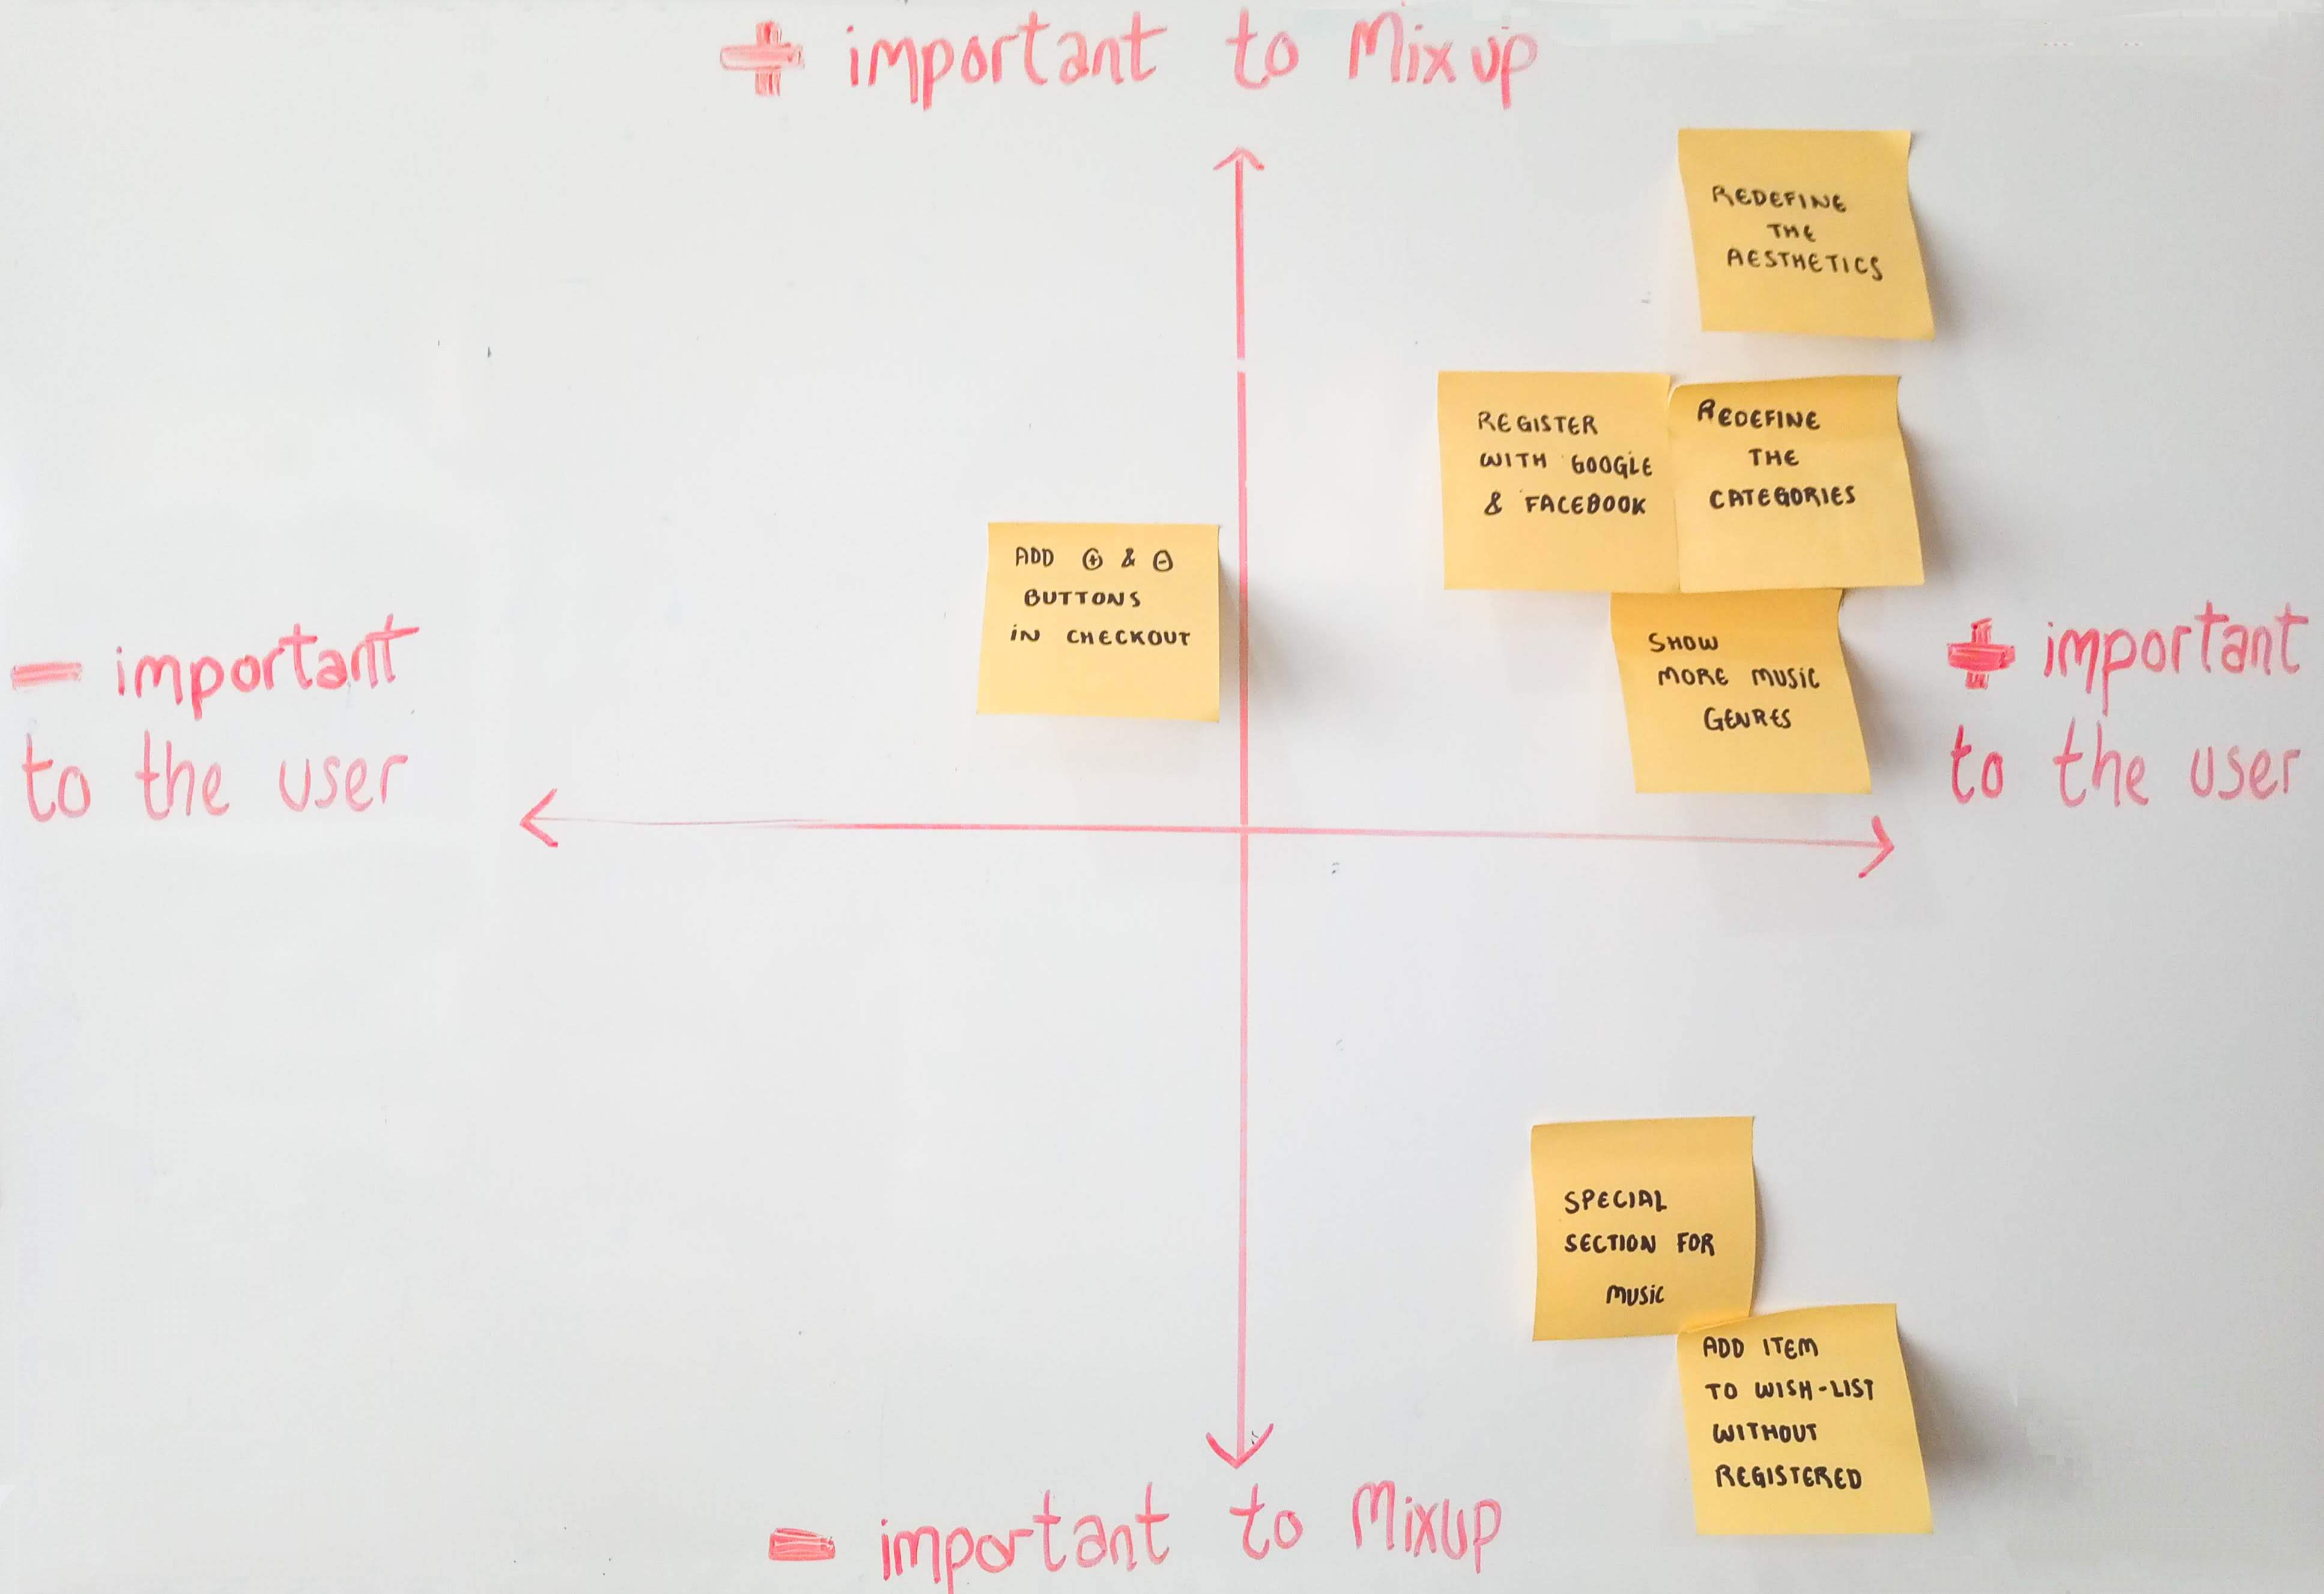 + important to Mixup
REDEFINE
THE
AESTHETICS
REGISTER
WITH GOOGLE
& FACEBOOK
REDEFINE
THE
CATEGORIES
ADD ⊕ & ⊖
BUTTONS
IN CHECKOUT
SHOW
MORE MUSIC
GENRES
− important
to the user
+ important
to the user
SPECIAL
SECTION FOR
MUSIC
ADD ITEM
TO WISH-LIST
WITHOUT
REGISTERED
− important to Mixup